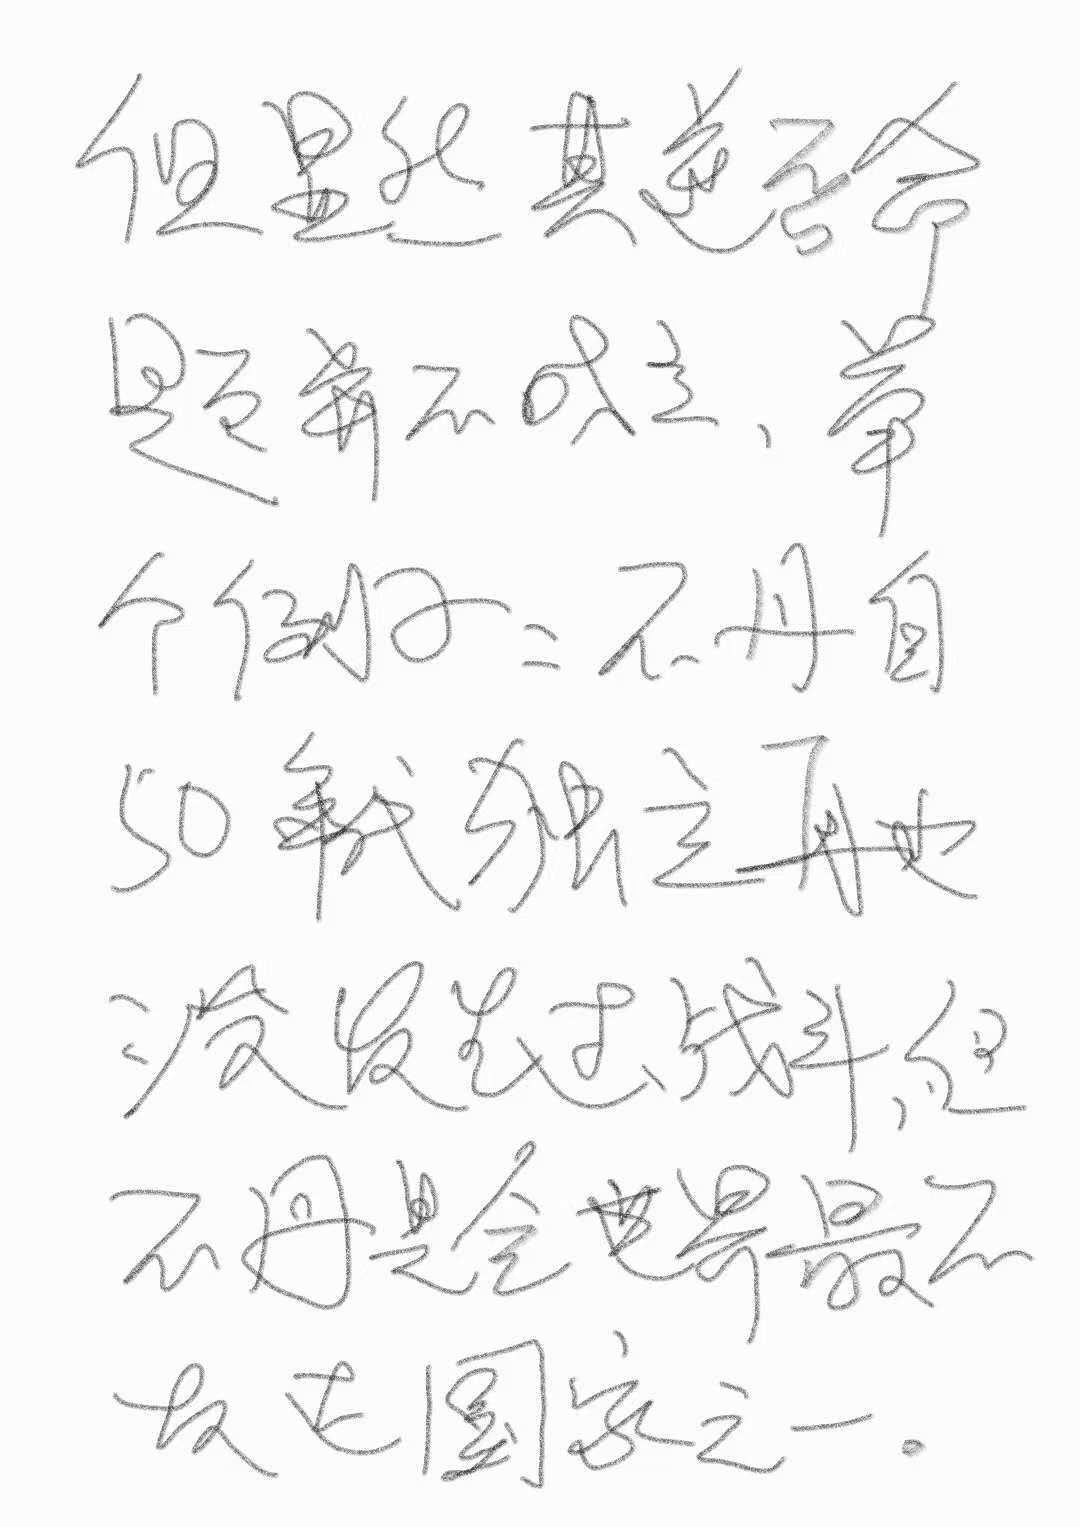 但显然其逆否命
题并不成立、举
个例子：不丹自
50年代独立再也
没发生过战斗，但
不丹是全世界最不
发达国家之一。